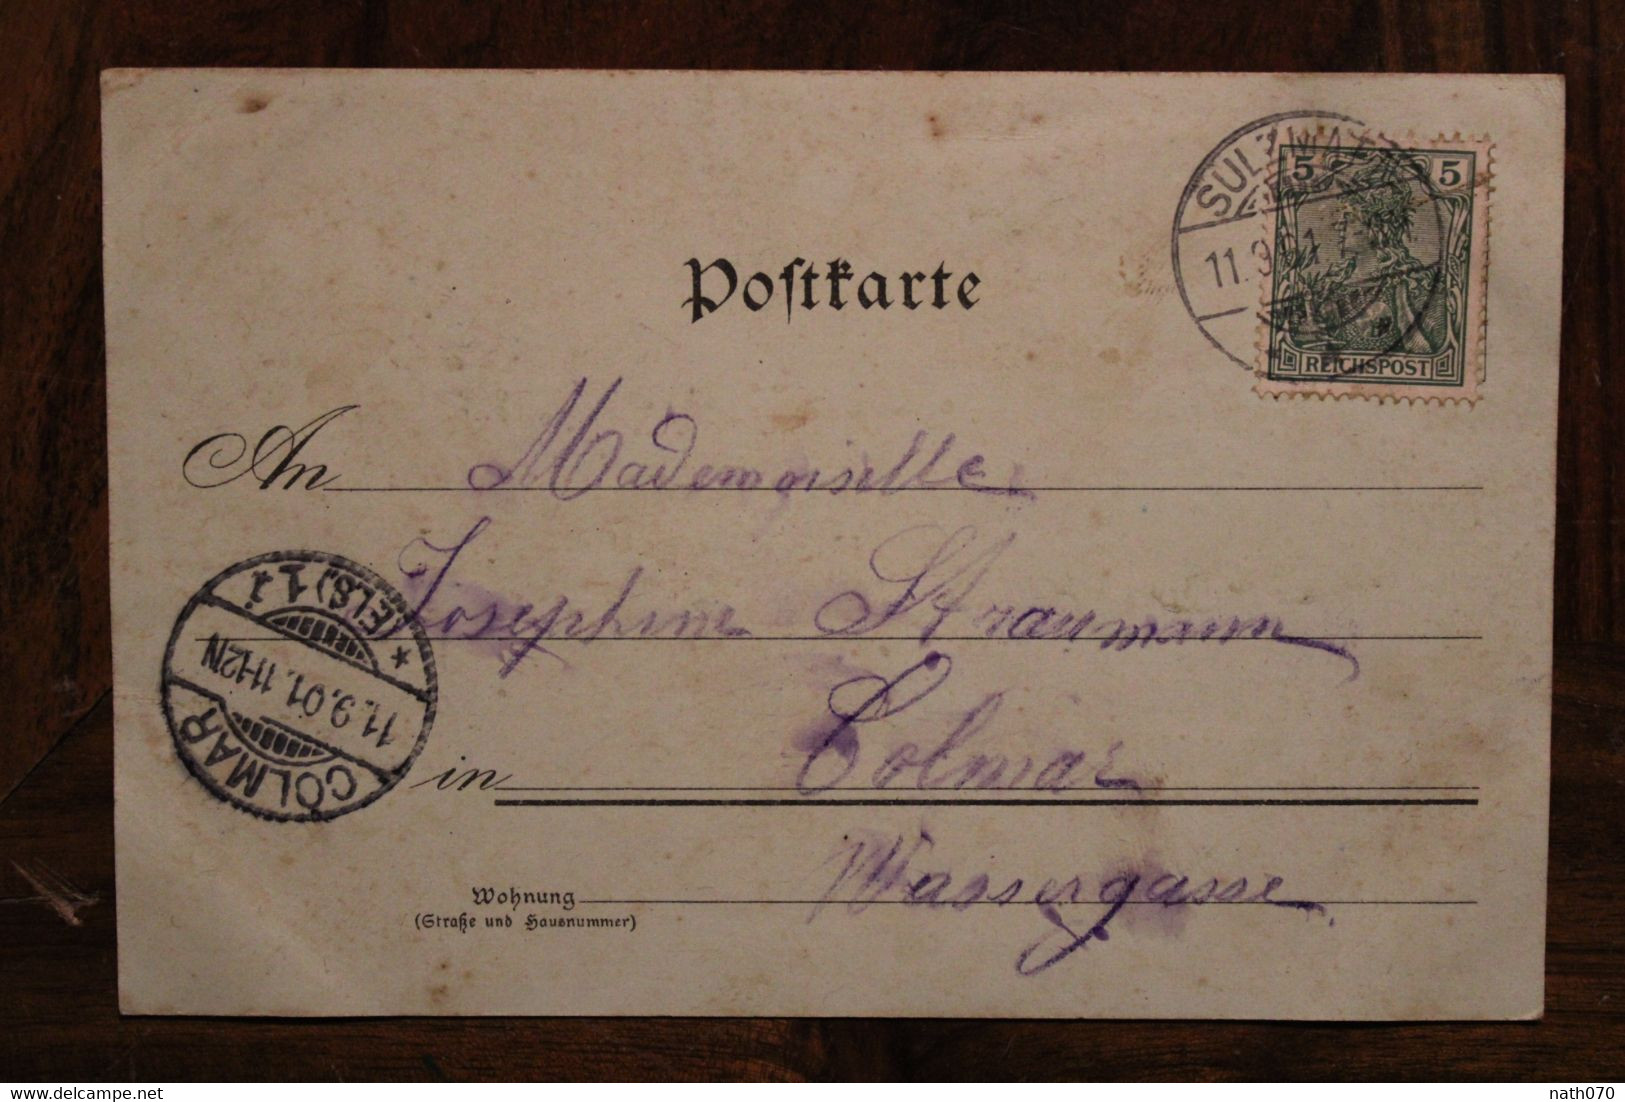 SULZMATT
11.9.01
5 5
REICHSPOST
Postkarte
An Mademoiselle
Josephine Straumann
in Colmar
Wassergasse
Wohnung
(Straße und Hausnummer)
COLMAR
11.9.01. 11-12N
* (ELS) 1
delcampe.net
nath070